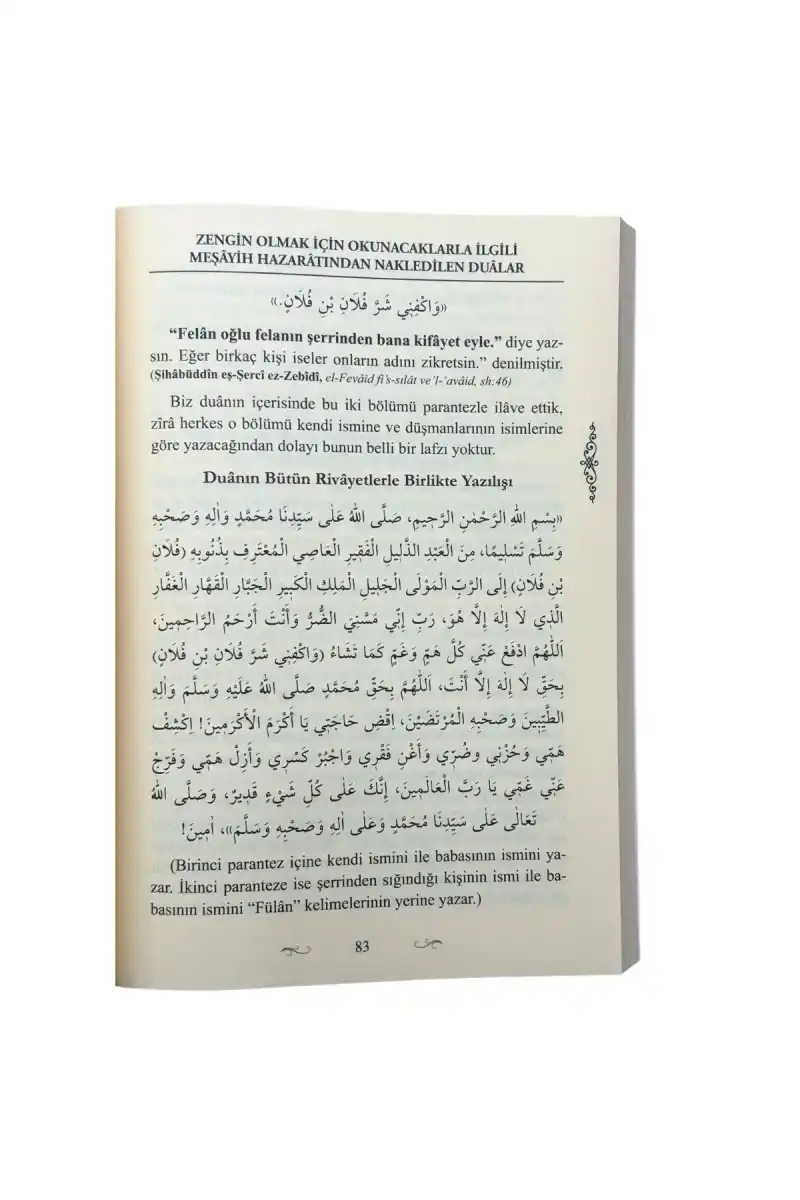 ZENGİN OLMAK İÇİN OKUNACAKLARLA İLGİLİ
MEŞÂYİH HAZARÂTINDAN NAKLEDİLEN DUÂLAR
«وَاكْفِنِي شَرَّ فُلَانِ بْنِ فُلَانٍ.»
“Felân oğlu felanın şerrinden bana kifâyet eyle.” diye yaz-
sın. Eğer birkaç kişi iseler onların adını zikretsin.” denilmiştir.
(Şihâbüddîn eş-Şercî ez-Zebîdî, el-Fevâid fi’s-sılât ve’l-‘avâid, sh:46)
Biz duânın içerisinde bu iki bölümü parantezle ilâve ettik,
zîrâ herkes o bölümü kendi ismine ve düşmanlarının isimlerine
göre yazacağından dolayı bunun belli bir lafzı yoktur.
Duânın Bütün Rivâyetlerle Birlikte Yazılışı
«بِسْمِ اللهِ الرَّحْمٰنِ الرَّحِيمِ، صَلَّى اللهُ عَلَى سَيِّدِنَا مُحَمَّدٍ وَاٰلِهِ وَصَحْبِهِ
وَسَلَّمَ تَسْلِيمًا، مِنَ الْعَبْدِ الذَّلِيلِ الْفَقِيرِ الْعَاصِي الْمُعْتَرِفِ بِذُنُوبِهِ (فُلَانِ
بْنِ فُلَانٍ) إِلَى الرَّبِّ الْمَوْلَى الْجَلِيلِ الْمَلِكِ الْكَبِيرِ الْجَبَّارِ الْقَهَّارِ الْغَفَّارِ
الَّذِي لَا إِلٰهَ إِلَّا هُوَ، رَبِّ إِنِّي مَسَّنِيَ الضُّرُّ وَأَنْتَ أَرْحَمُ الرَّاحِمِينَ،
اَللّٰهُمَّ ادْفَعْ عَنِّي كُلَّ هَمٍّ وَغَمٍّ كَمَا تَشَاءُ (وَاكْفِنِي شَرَّ فُلَانِ بْنِ فُلَانٍ)
بِحَقِّ لَا إِلٰهَ إِلَّا أَنْتَ، اَللّٰهُمَّ بِحَقِّ مُحَمَّدٍ صَلَّى اللهُ عَلَيْهِ وَسَلَّمَ وَاٰلِهِ
الطَّيِّبِينَ وَصَحْبِهِ الْمُرْتَضَيْنَ، اِقْضِ حَاجَتِي يَا أَكْرَمَ الْأَكْرَمِينَ! اِكْشِفْ
هَمِّي وَحُزْنِي وضُرِّي وَأَغْنِ فَقْرِي وَاجْبُرْ كَسْرِي وَأَزِلْ هَمِّي وَفَرِّجْ
عَنِّي غَمِّي يَا رَبَّ الْعَالَمِينَ، إِنَّكَ عَلٰى كُلِّ شَيْءٍ قَدِيرٌ، وَصَلَّى اللهُ
تَعَالٰى عَلٰى سَيِّدِنَا مُحَمَّدٍ وَعَلٰى اٰلِهِ وَصَحْبِهِ وَسَلَّمَ»، اٰمِينَ!
(Birinci parantez içine kendi ismini ile babasının ismini ya-
zar. İkinci paranteze ise şerrinden sığındığı kişinin ismi ile ba-
basının ismini “Fülân” kelimelerinin yerine yazar.)
83